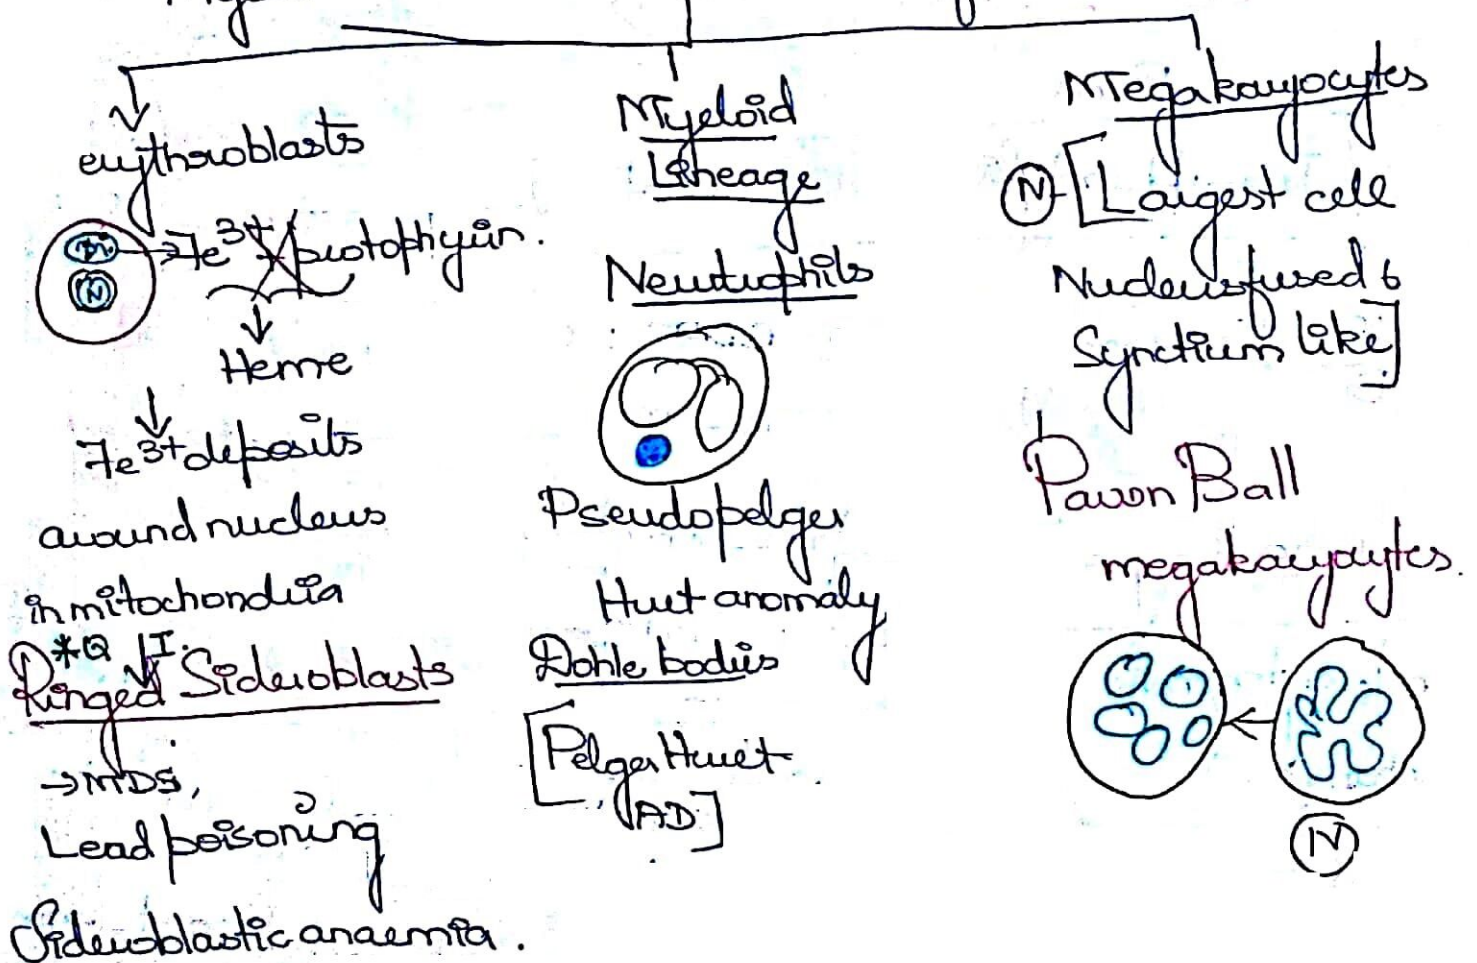 erythroblasts
Fe3+ + protophyrin.
Heme
Fe3+ deposits
around nucleus
in mitochondria
*Q I.
Ringed Sideroblasts
→ MDS,
Lead poisoning
Sideroblastic anaemia.
Myeloid
Lineage
Neutrophils
Pseudopelger
Huet anomaly
Dohle bodies
[Pelger Huet
AD]
Megakaryocytes
N - [Largest cell
Nucleus fused &
Synctium like]
Pawn Ball
megakaryocytes.
N
N